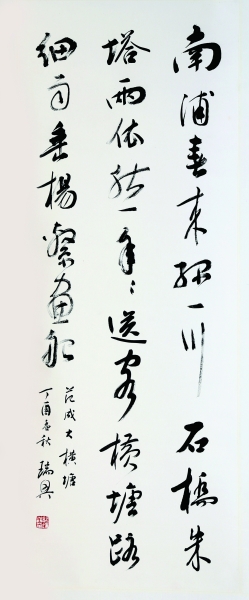 南浦春来綠一川石橋朱
塔兩依然年々送客横塘路
細雨垂楊繫畫船
范成大横塘
丁酉秋瑞興